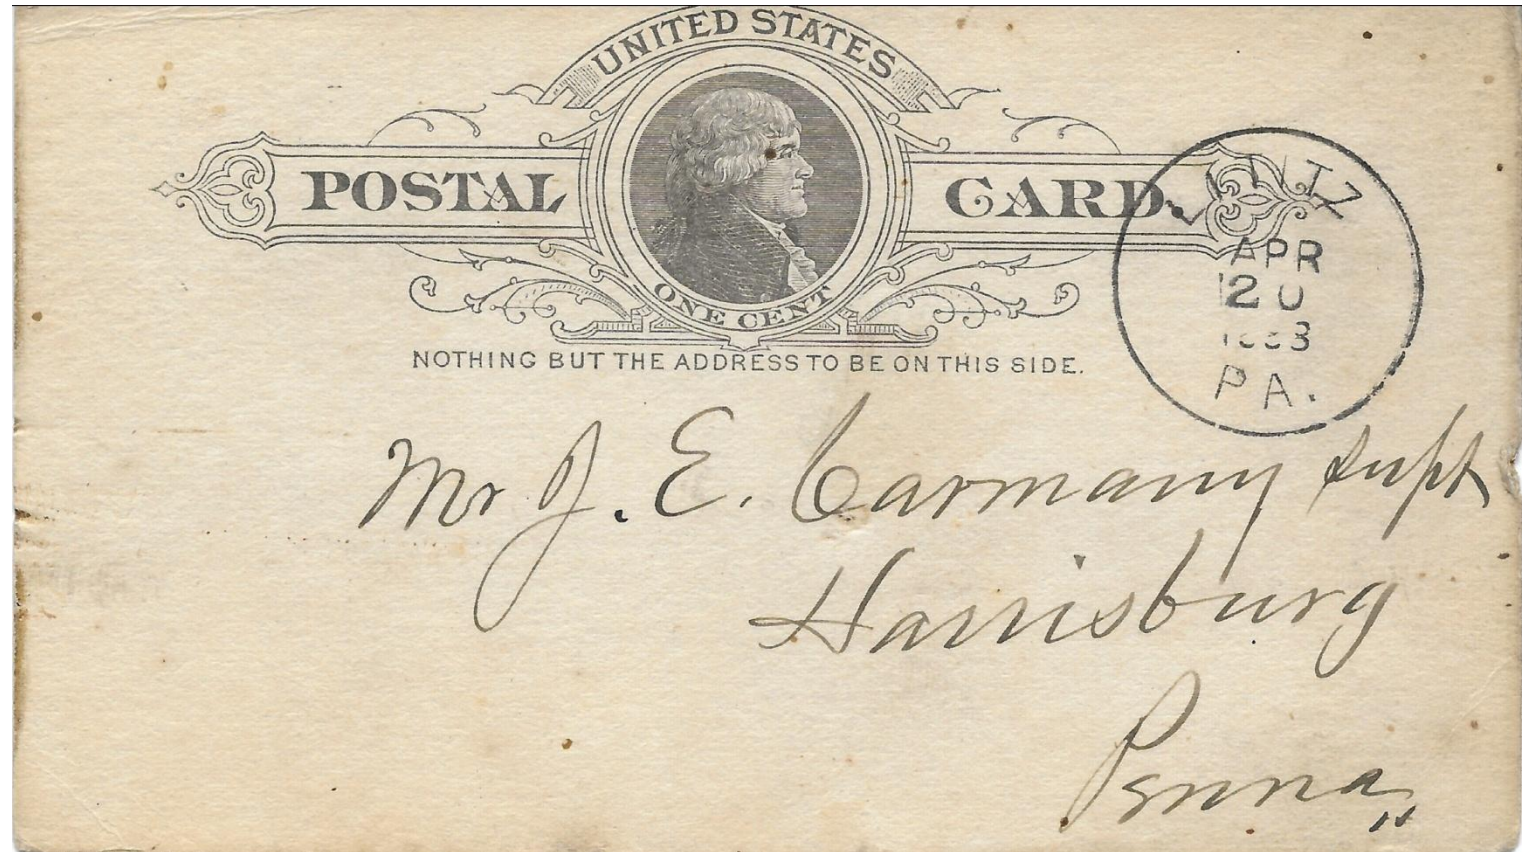 UNITED STATES
POSTAL CARD.
ONE CENT
NOTHING BUT THE ADDRESS TO BE ON THIS SIDE.
LITITZ
APR
20
PA.
Mr J. E. Carmany Supt
Harrisburg
Penna,,